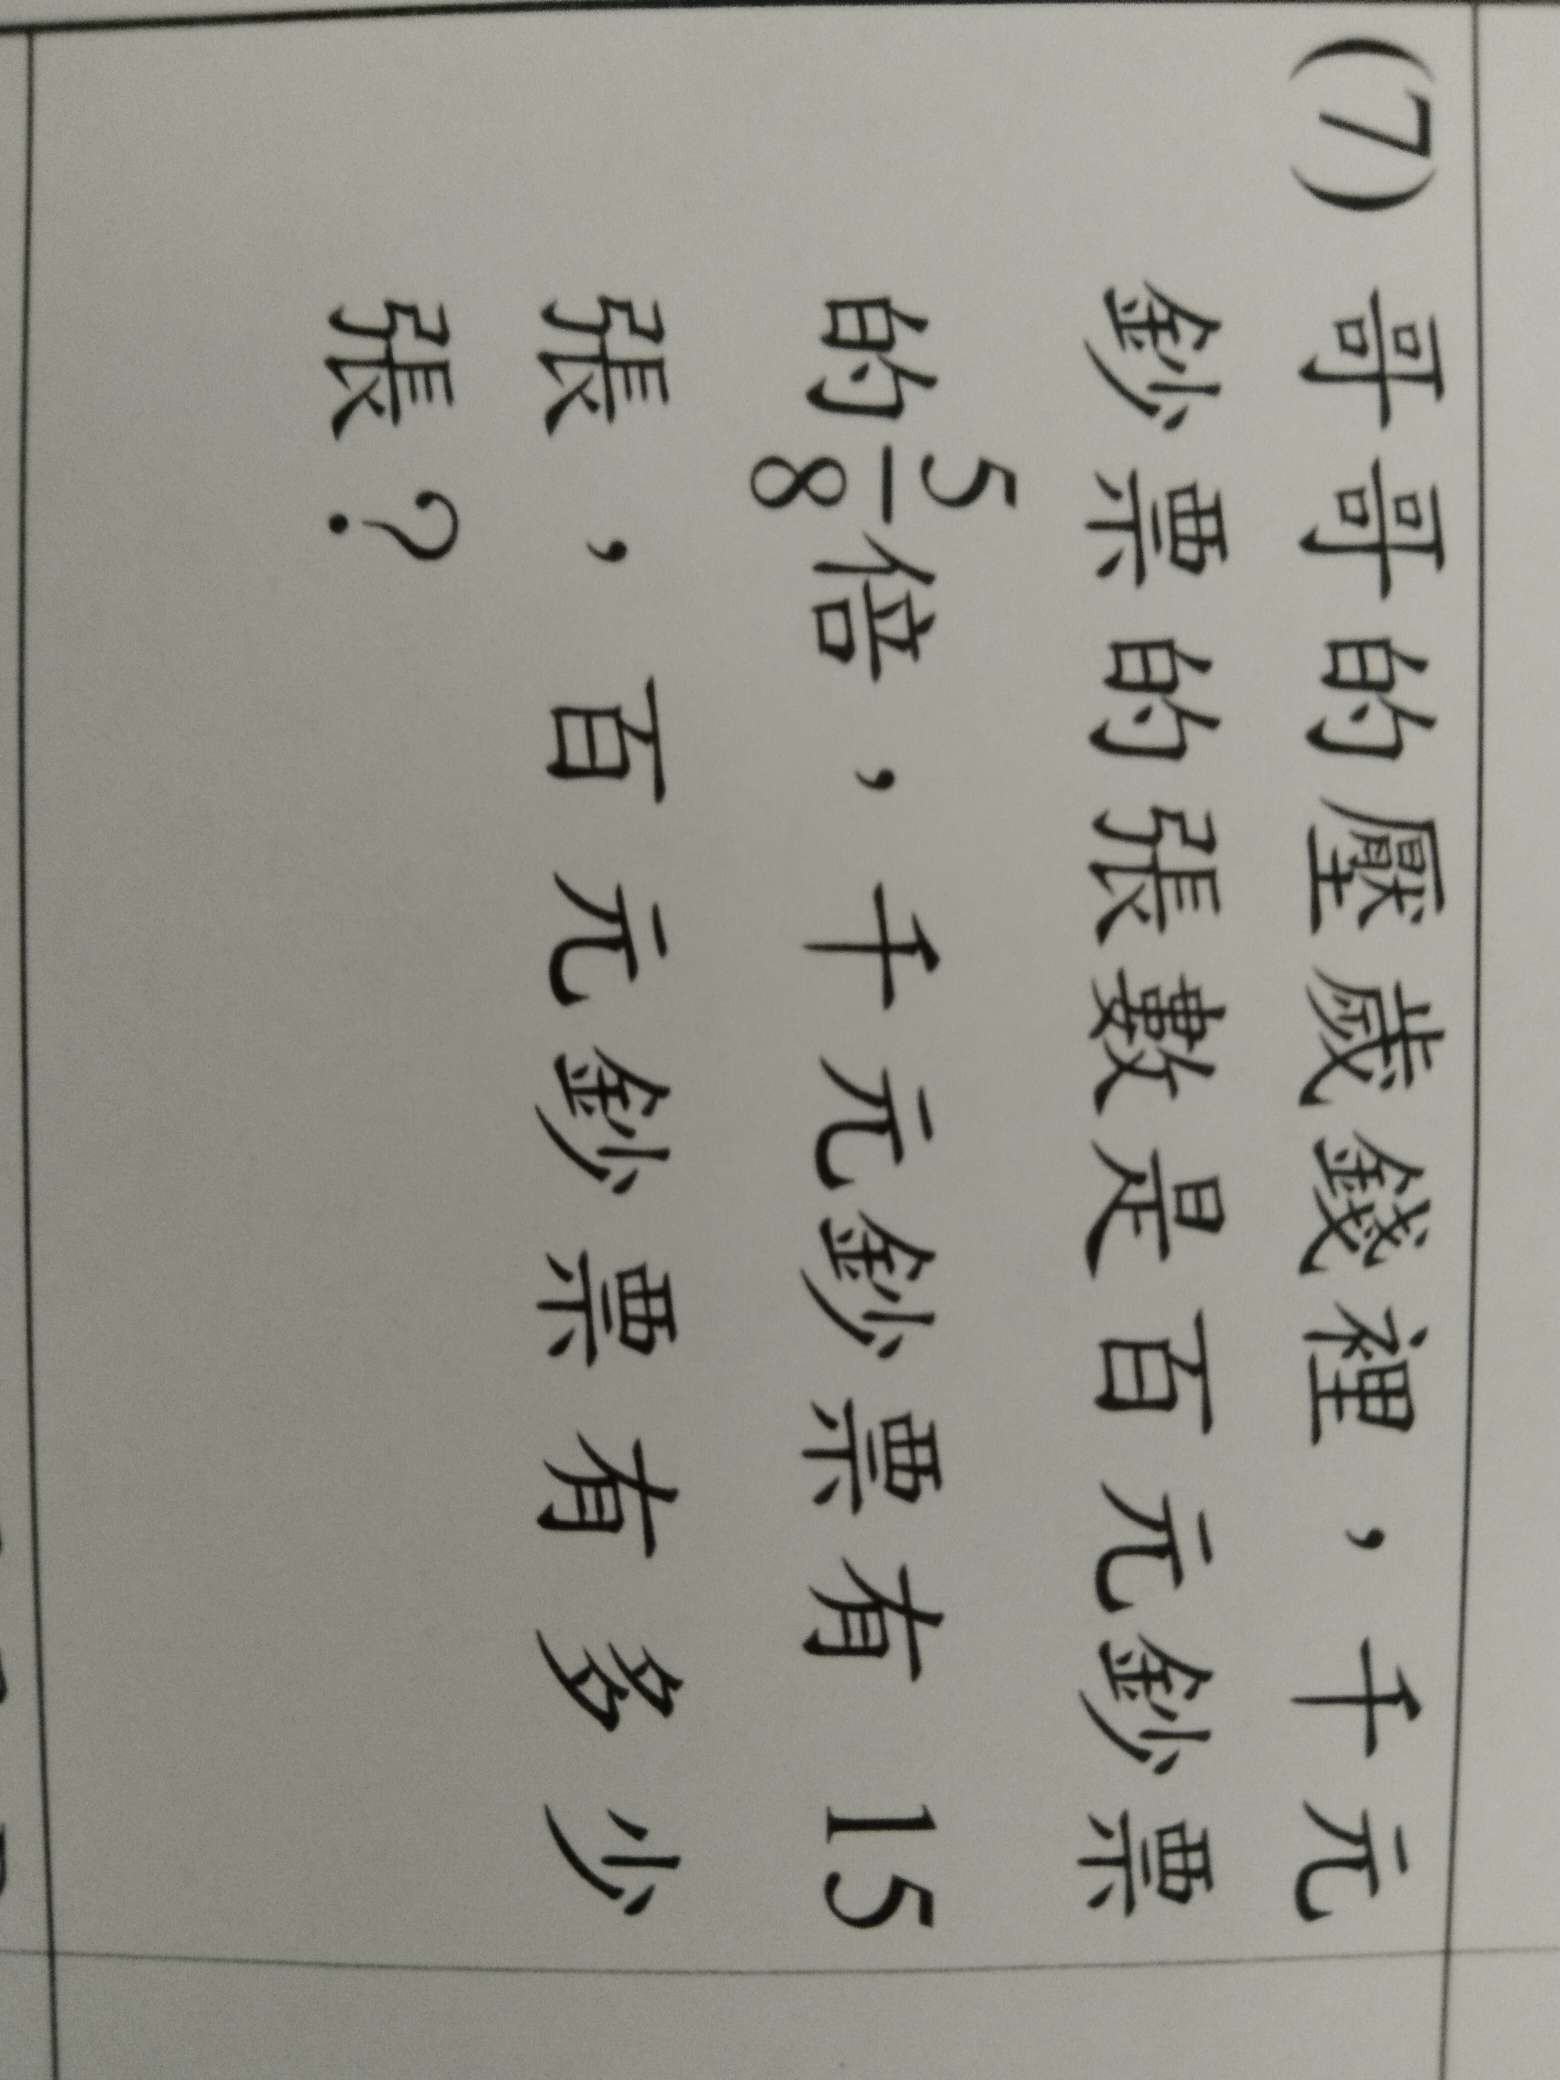 (7) 哥哥的壓歲錢裡，千元
鈔票的張數是百元鈔票
的5/8倍，千元鈔票有 15
張，百元鈔票有多少
張？